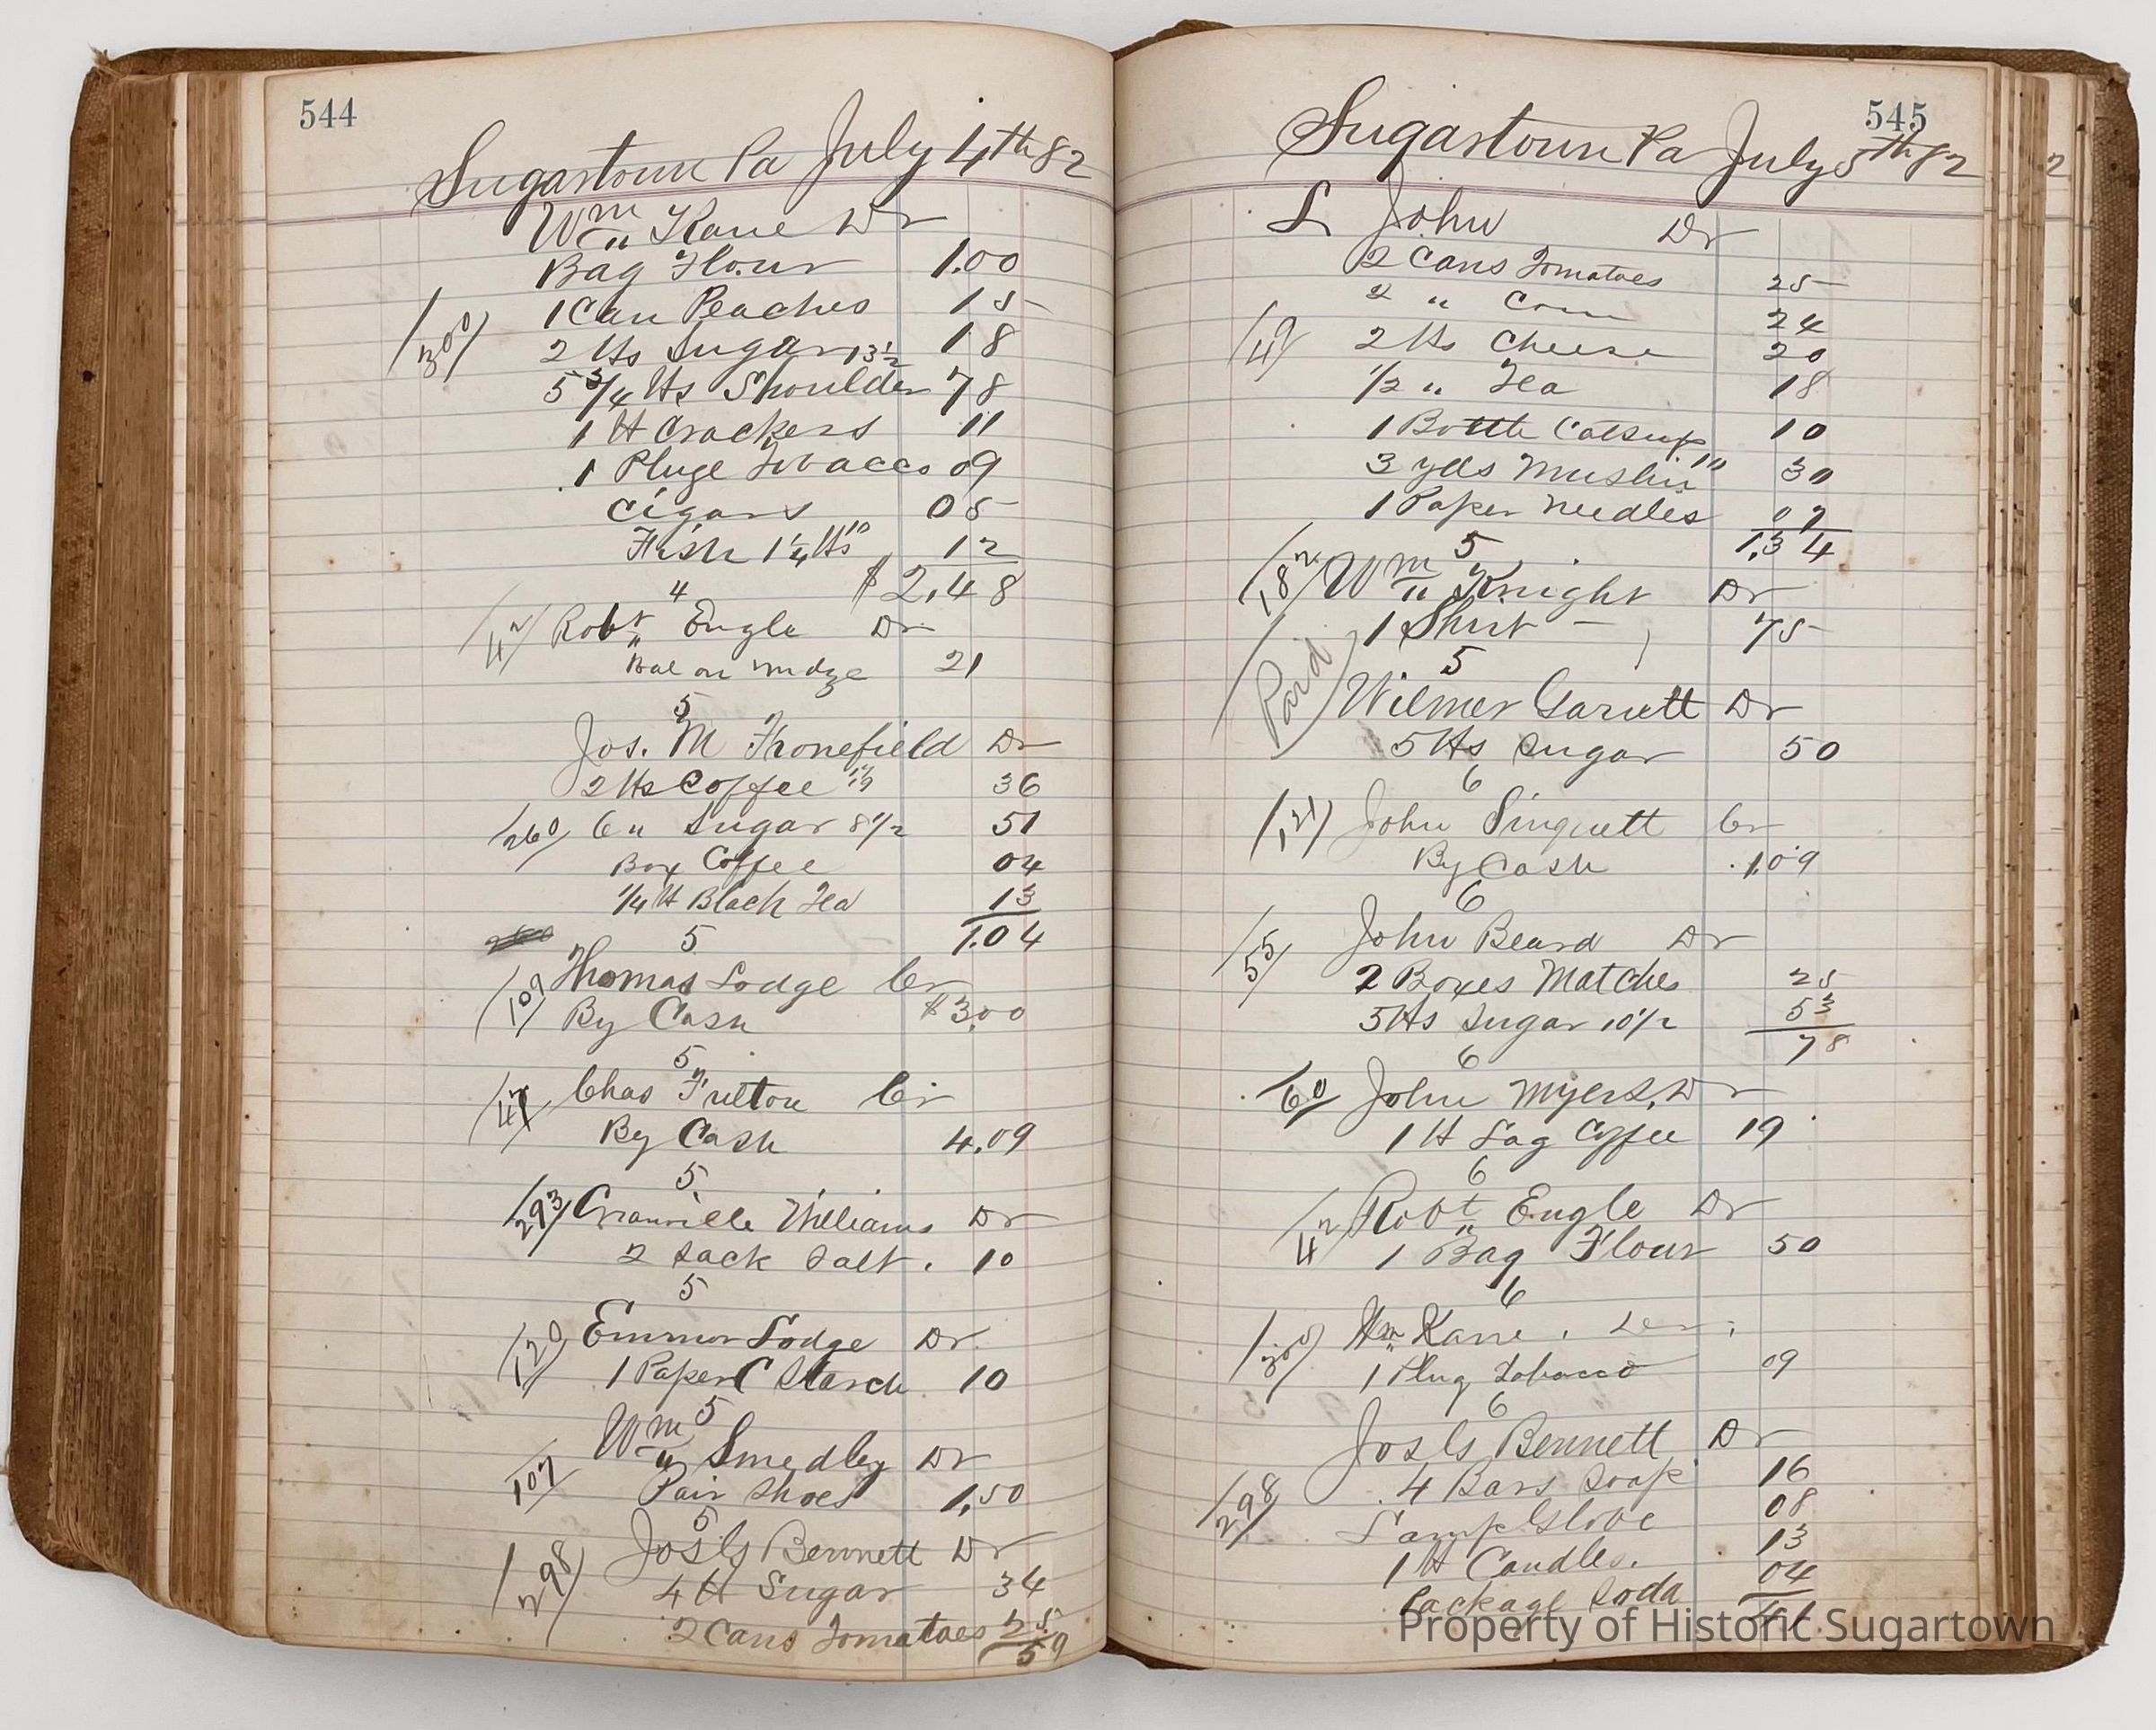 544
Sugartown Pa July 4th 82
Wm Kane Dr
Bag Flour 1.00
1 Can Peaches 15
/300/ 2 lbs Sugar 18
5 3/4 lbs Shoulder 13 1/2 78
1 lb Crackers 11
1 Pluge Tobacco 09
Cigars 05
Fish 1 1/4 lbs 10 12
$2.48
4
/42/ Robt Engle Dr
Bal on mdze 21
5
Jos. M Fronefield Dr
2 lbs Coffee 36
/260/ 6 " Sugar 8 1/2 51
Box Coffee 04
1/4 lb Black Tea 13
1.04
5
/109/ Thomas Lodge Cr
By Cash $3.00
5
/47/ Chas Fulton Cr
By Cash 4.09
5
/293/ Granville Williams Dr
2 Sack Salt . 10
5
/120/ Emmor Lodge Dr.
1 Paper C Starch 10
5
Wm Smedley Dr
/107/ Pair Shoes 1.50
5
Jos G Bennett Dr
/298/ 4 lb Sugar 34
2 Cans Tomatoes 25
59
545
Sugartown Pa July 5th 82
L John Dr
2 Cans Tomatoes 25
2 " Corn 24
/49/ 2 lbs Cheese 20
1/2 " Tea 18
1 Bottle Catsup 10
3 yds Muslin 10 30
1 Paper Needles 07
1.34
5
/182/ Wm Knight Dr
1 Shirt 75
5
/Paid/ Wilmer Garrett Dr
5 lbs Sugar 50
6
/121/ John Singuett Cr
By Cash 1.09
6
/55/ John Beard Dr
2 Boxes Matches 25
5 lbs Sugar 10 1/2 53
78
6
/60/ John Myers, Dr
1 lb Lag Coffee 19
6
/42/ Robt Engle Dr
1 Bag Flour 50
6
/300/ Wm Kane.
1 Plug Tobacco 09
6
Jos G Bennett Dr
4 Bars Soap 16
/298/ Lamp Globe 08
1 lb Candles. 13
Package Soda 04
41
Property of Historic Sugartown